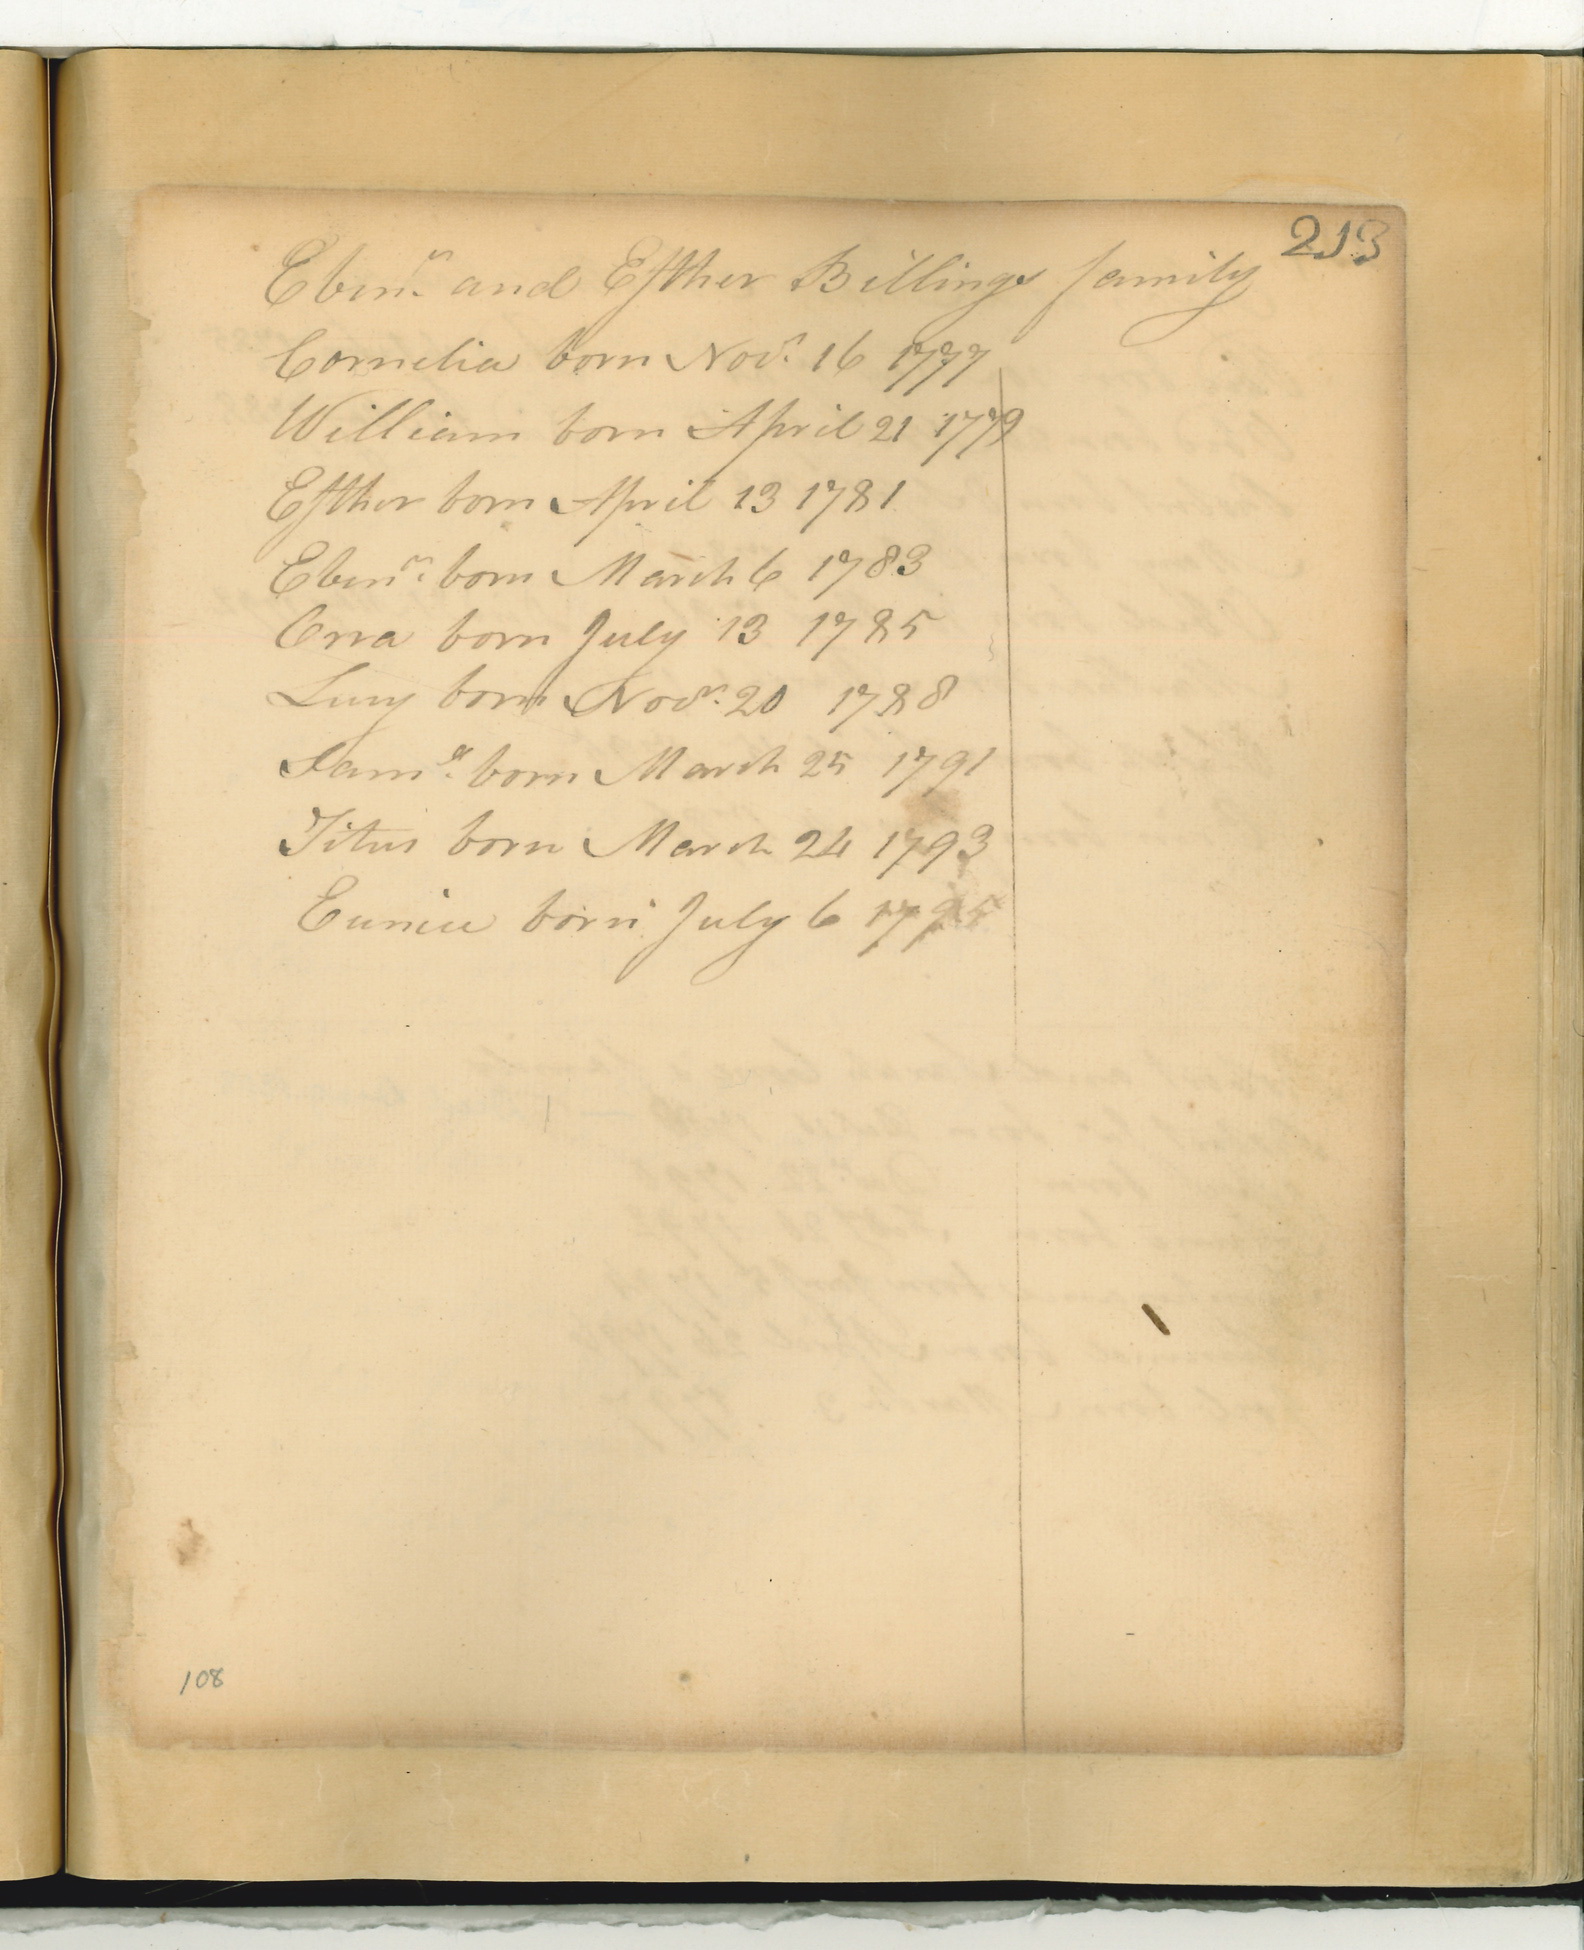 213
Ebenr. and Esther Billings family
Cornelia born Novr. 16 1777
William born April 21 1779
Esther born April 13 1781
Ebenr. born March 6 1783
Orra born July 13 1785
Lucy born Novr. 20 1788
Saml. born March 25 1791
Titus born March 24 1793
Eunice born July 6 1795
108